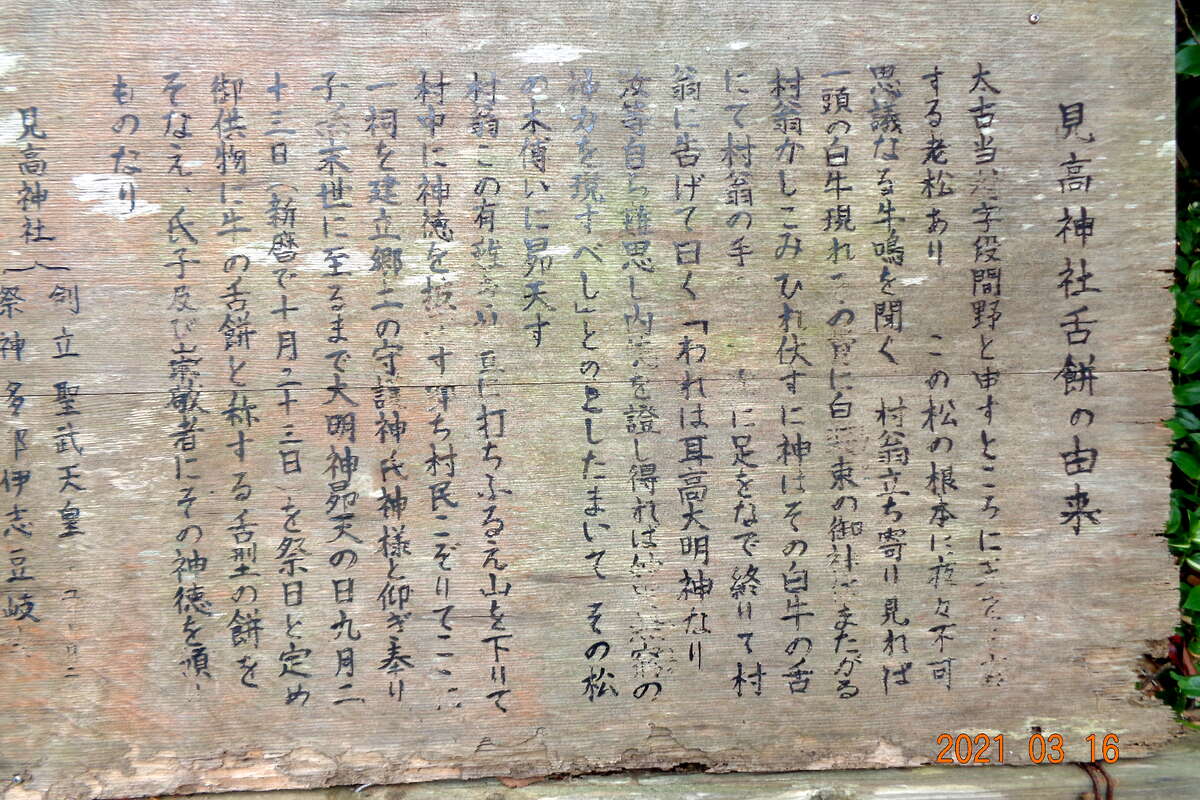 見高神社舌餅の由来
太古当 字段間野と申すところに
する老松あり この松の根本に 々不可
思議なる牛鳴を聞く 村翁立ち寄り見れば
一頭の白牛現れ の に白 束の御神 またがる
村翁かしこみひれ伏すに神はその白牛の舌
にて村翁の手 に足をなで終りて村
翁に告げて曰く「われは耳高大明神なり
汝等自ら 思し内 を證し得れば の
神力を現すべし」とのとしたまいて その松
の木傳いに昇天す
村翁この有 に打ちふるえ山を下りて
村中に神徳を す 即ち村民こぞりてここに
一祠を建立郷土の守護神氏神様と仰ぎ奉り
子 末世に至るまで大明神昇天の日九月二
十三日(新暦で十月二十三日)を祭日と定め
御供物に牛の舌餅と称する舌型の餅を
そなえ、氏子及び崇敬者にその神徳を頒
ものなり
見高神社
創立 聖武天皇
祭神 多 伊志豆岐
2021 03 16